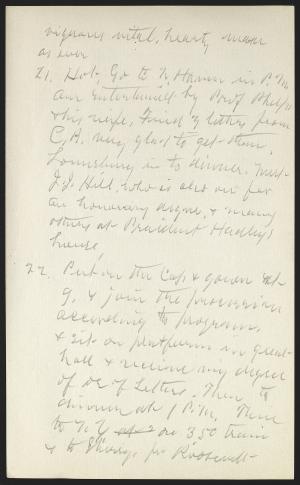 vigorous vital, hearty man
as ever
21. Hot, Go to N. Haven in P.M.
am entertained by Prof Phelps
& his wife. Found 3 letters from
C.B. very glad to get them.
Lounsbury in to dinner. Meet
J.J. Hill, who is also on for
an honorary degree, & many
others at President Hadley's
house,
22. Put on the Cap & gown at
9. & join the procession
according to program,
& sit on platform in great
hall & receive my degree
of Dr of Letters. Then to
dinner at 1 P.M. Then
to N.Y. on 3.50 train
& to Sherry's for Roosevelt